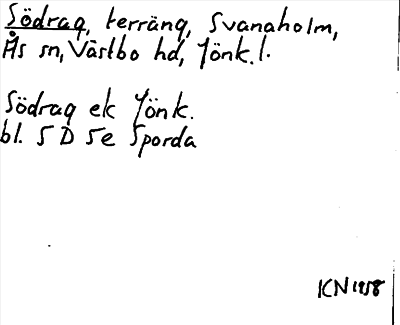 Södraq, terränq, Svanaholm,
Ås sn, Västbo hd, Jönk. l.
Södraq ek Jönk.
bl. 5 D 5e Sporda
KN 1958